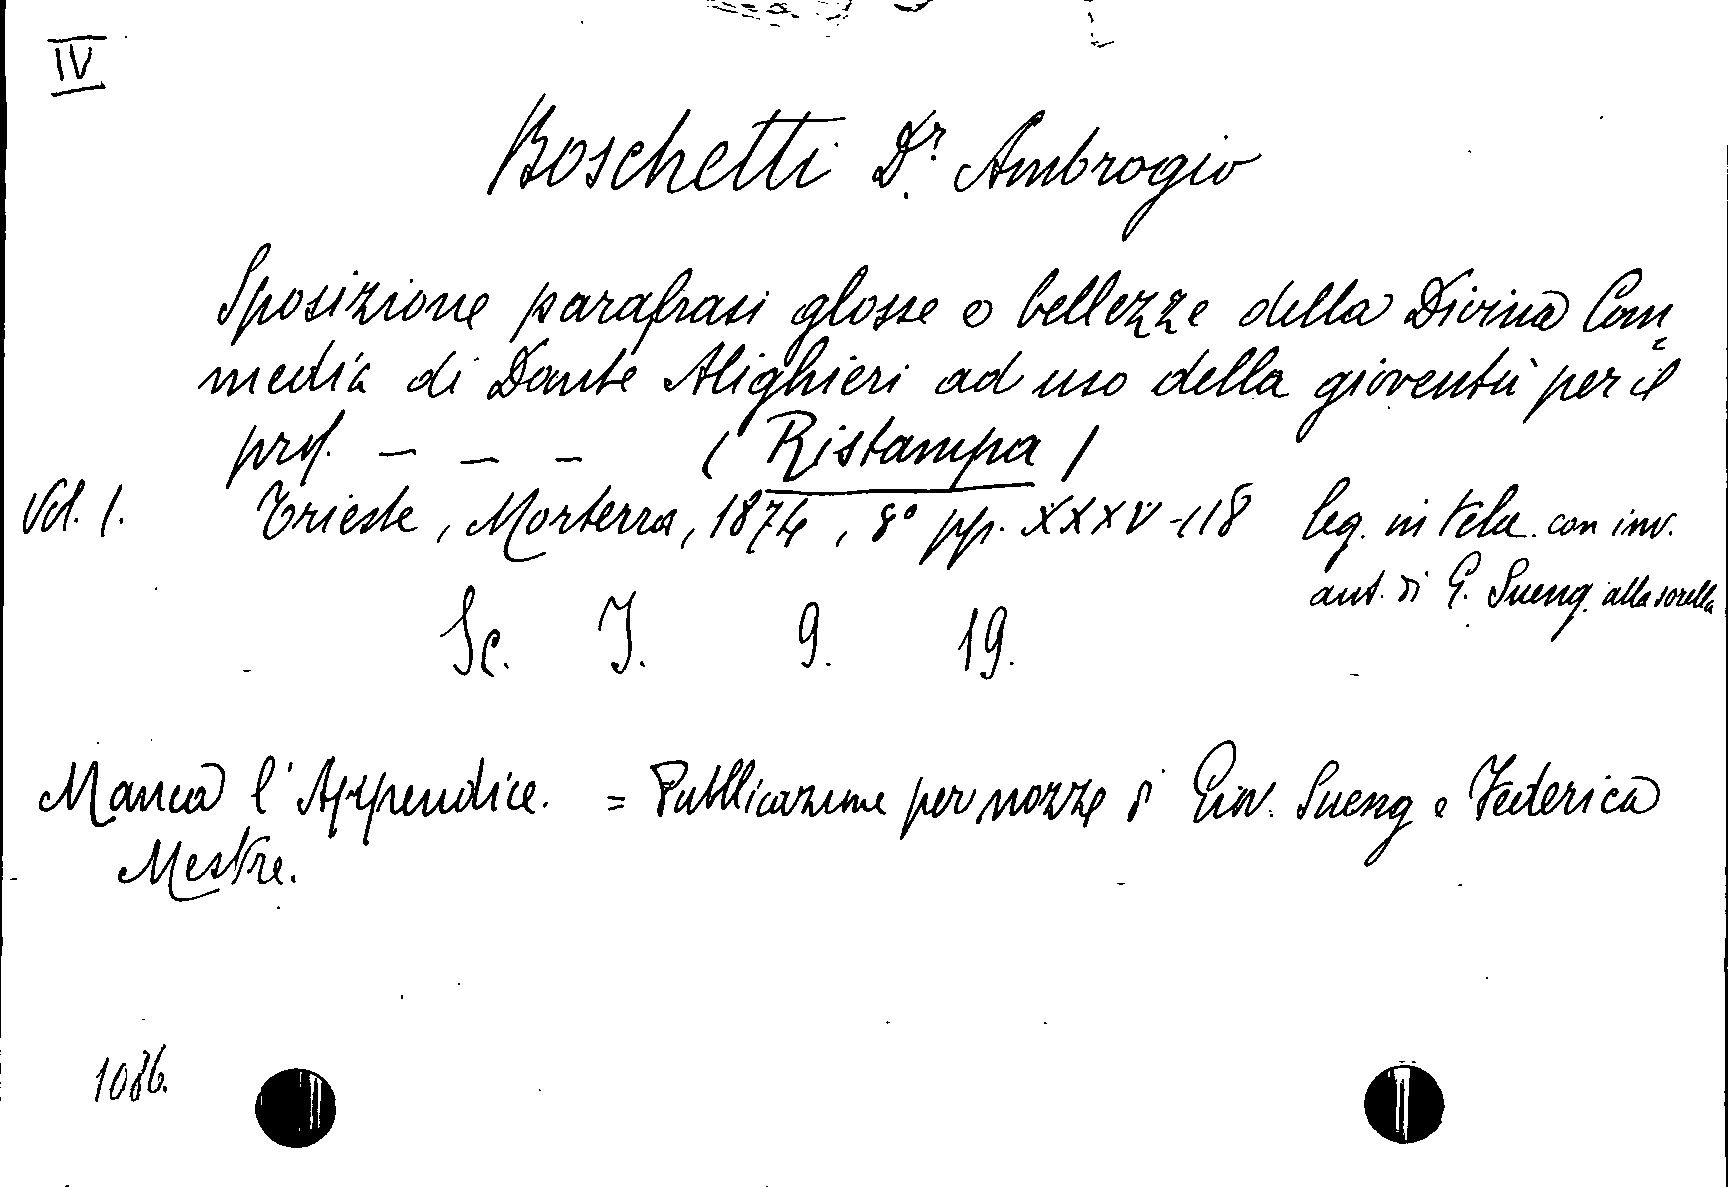 IV
Boschetti Dr. Ambrogio
Sposizione parafrasi glosse e bellezze della Divina Com=
media di Dante Alighieri ad uso della gioventù per il
prof. — — — (Ristampa)
Vol. 1. Trieste, Morterra, 1874, 8° pp. XXXV-118 leg. in tela con inv.
aut. di G. Sueng. alla sorella
Sc. I. 9. 19.
Manca l'Appendice. = Pubblicazione per nozze di Giov. Sueng e Federica
Mestre.
1086.